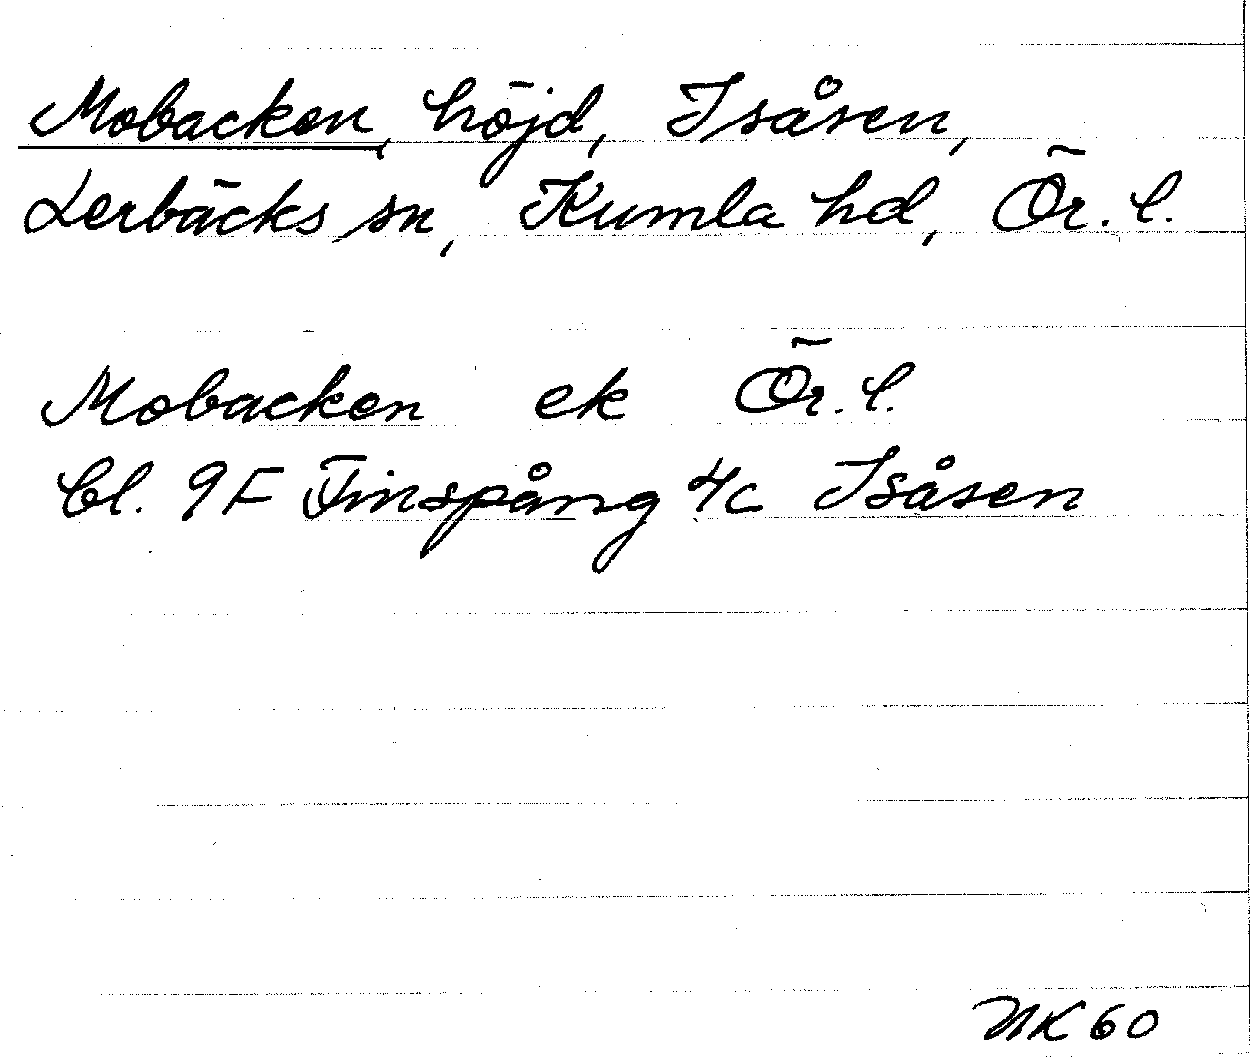 Mobacken, höjd, Isåsen,
Lerbäcks sn, Kumla hd, Ör. l.
Mobacken ek Ör. l.
bl. 9F Finspång 4c Isåsen
NK 60